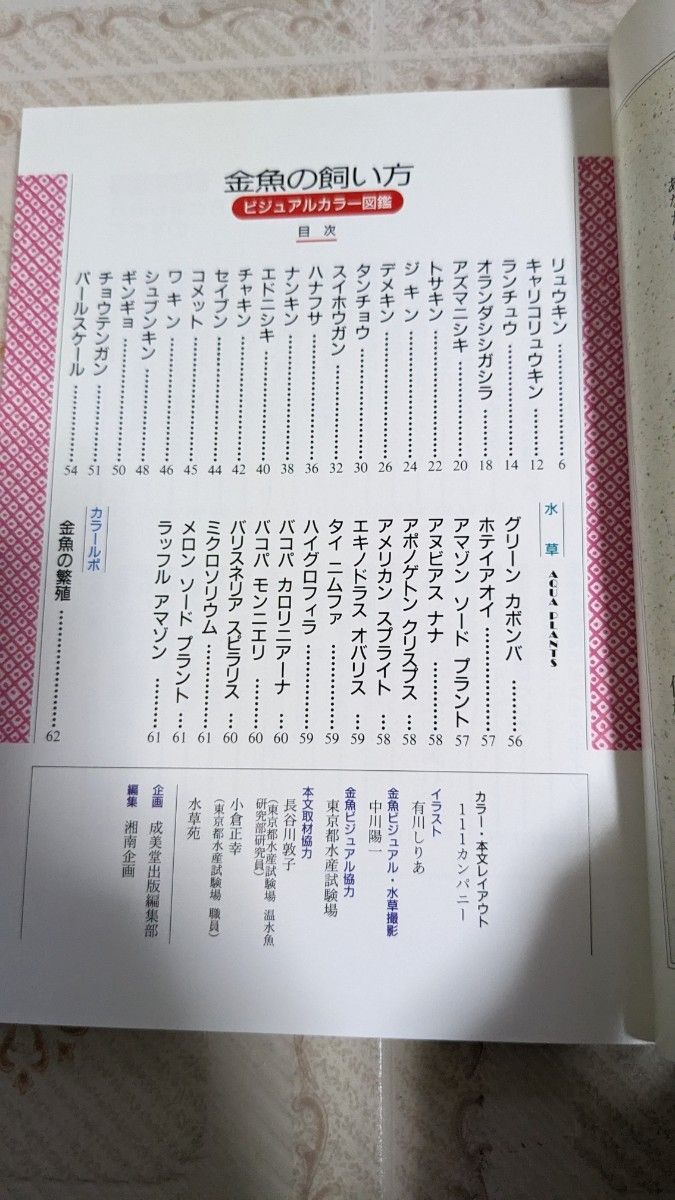 金魚の飼い方
ビジュアルカラー図鑑
目次
リュウキン…………6
キャリコリュウキン…………12
ランチュウ…………14
オランダシシガシラ…………18
アズマニシキ…………20
トサキン…………22
ジキン…………24
デメキン…………26
タンチョウ…………30
スイホウガン…………32
ハナフサ…………36
ナンキン…………38
エドニシキ…………40
チャキン…………42
セイブン…………44
コメット…………45
ワキン…………46
シュブンキン…………48
ギンギョ…………50
チョウテンガン…………51
パールスケール…………54
水草 AQUA PLANTS
グリーン カボンバ …………56
ホテイアオイ…………57
アマゾン ソード プラント 57
アヌビアス ナナ …………58
アポノゲトン クリスプス …58
アメリカン スプライト …58
エキノドラス オバリス …59
タイ ニムファ …………59
ハイグロフィラ…………59
バコパ カロリニアーナ …60
バコパ モンニエリ …60
バリスネリア スピラリス …60
ミクロソリウム…………61
メロン ソード プラント …61
ラッフル アマゾン …………61
カラールポ
金魚の繁殖…………62
カラー・本文レイアウト
111カンパニー
イラスト
有川しりあ
金魚ビジュアル・水草撮影
中川陽一
金魚ビジュアル協力
東京都水産試験場
本文取材協力
長谷川敦子
(東京都水産試験場 温水魚
研究部研究員)
小倉正幸
(東京都水産試験場 職員)
水草苑
企画 成美堂出版編集部
編集 湘南企画